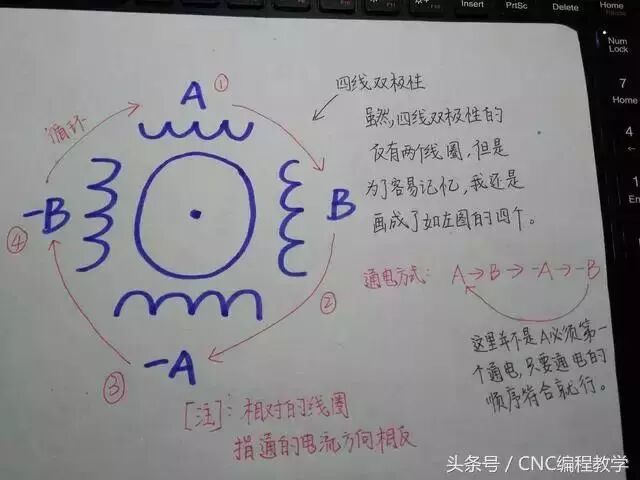 Insert
PrtSc
Delete
Home
Num
Lock
7
Home
4
1
End
A
①
循环
B
-B
④
②
-A
③
四线双极性
虽然,四线双极性的
仅有两个线圈,但是
为了容易记忆,我还是
画成了如左图的四个。
通电方式: A→B→-A→-B
这里并不是A必须第一
个通电,只要通电的
顺序符合就行。
[注]:相对的线圈
指通的电流方向相反
头条号 / CNC编程教学